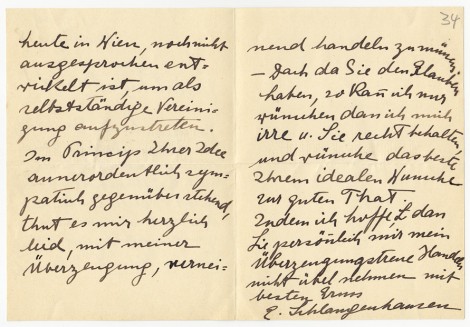 34
heute in Wien, noch nicht
ausgesprochen ent-
wickelt ist, um als
selbstständige Vereini-
gung aufzutreten.
Im Princip Ihrer Idee
ausserordentlich sym-
patisch gegenüberstehend,
thut es mir herzlich
leid, mit meiner
Überzeugung, vernei-
nend handeln zu müssen
— Doch da Sie den Glauben
haben, so kann ich nur
wünschen dass ich mich
irre u. Sie recht behalten,
und wünsche das beste
Ihrem idealen Wunsche
zur guten That.
Indem ich hoffe, dass
Sie persönlich mir mein
Überzeugungstreue Handeln
nicht übel nehmen mit
besten Gruss
E. Schlangenhausen